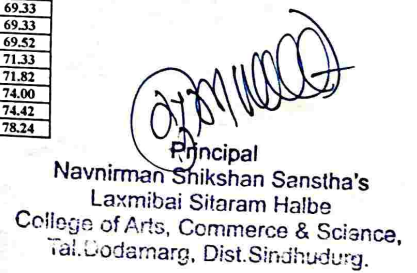 69.33
69.33
69.52
71.33
71.82
74.00
74.42
78.24
Principal
Navnirman Shikshan Sanstha's
Laxmibai Sitaram Halbe
College of Arts, Commerce & Science,
Tal.Dodamarg, Dist.Sindhudurg.